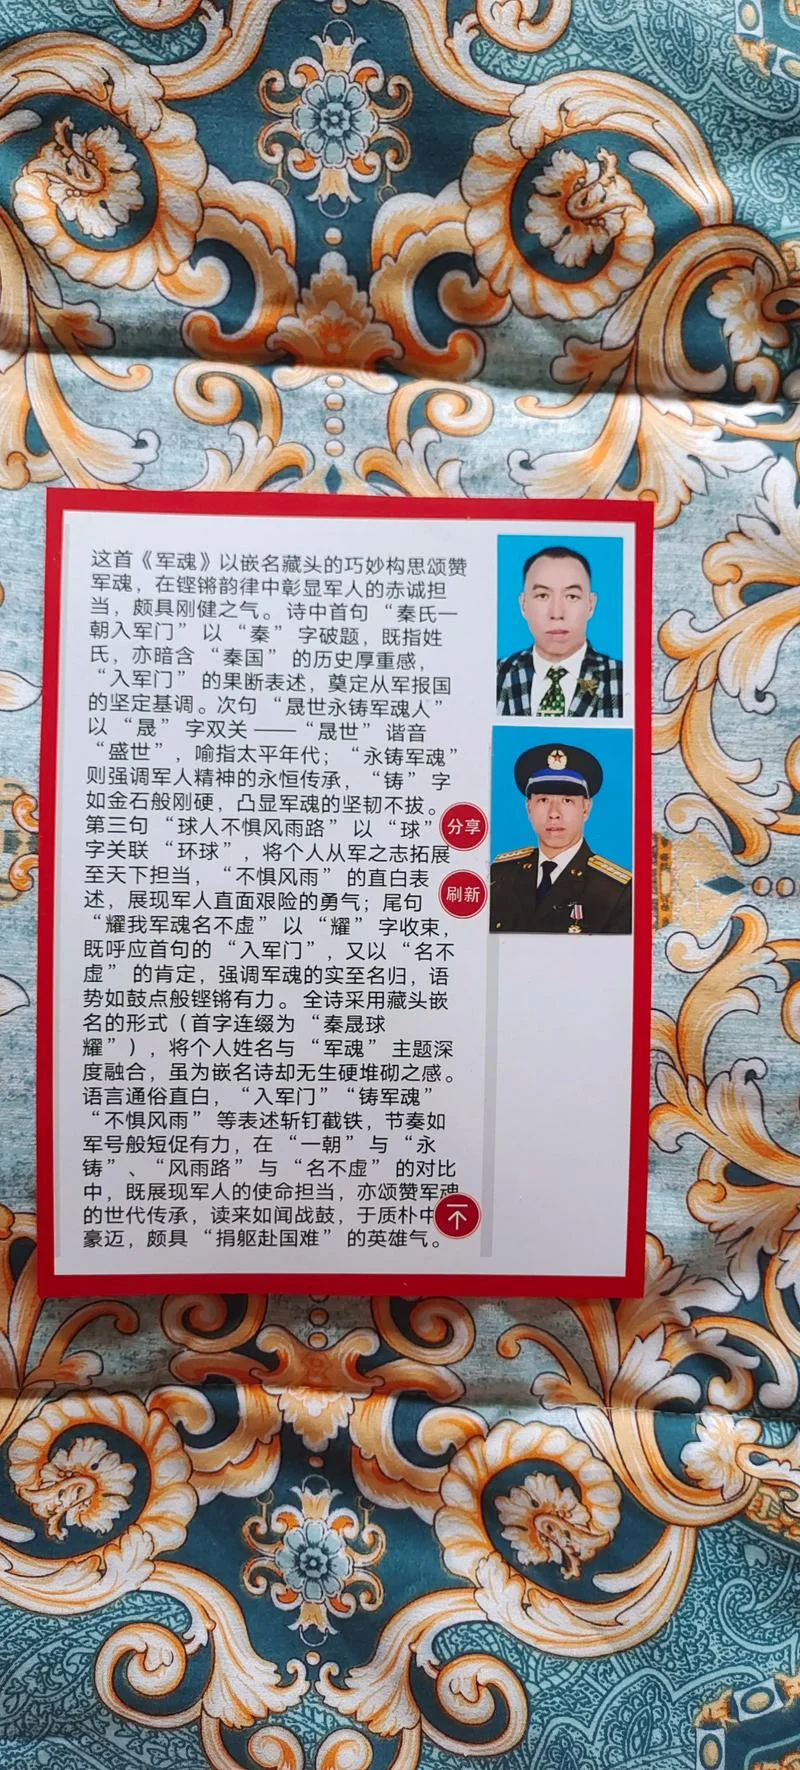 这首《军魂》以嵌名藏头的巧妙构思颂赞
军魂，在铿锵韵律中彰显军人的赤诚担
当，颇具刚健之气。诗中首句“秦氏一
朝入军门”以“秦”字破题，既指姓
氏，亦暗含“秦国”的历史厚重感，
“入军门”的果断表述，奠定从军报国
的坚定基调。次句“晟世永铸军魂人”
以“晟”字双关——“晟世”谐音
“盛世”，喻指太平年代；“永铸军魂”
则强调军人精神的永恒传承，“铸”字
如金石般刚硬，凸显军魂的坚韧不拔。
第三句“球人不惧风雨路”以“球”
字关联“环球”，将个人从军之志拓展
至天下担当，“不惧风雨”的直白表
述，展现军人直面艰险的勇气；尾句
“耀我军魂名不虚”以“耀”字收束，
既呼应首句的“入军门”，又以“名不
虚”的肯定，强调军魂的实至名归，语
势如鼓点般铿锵有力。全诗采用藏头嵌
名的形式（首字连缀为“秦晟球
耀”），将个人姓名与“军魂”主题深
度融合，虽为嵌名诗却无生硬堆砌之感。
语言通俗直白，“入军门”“铸军魂”
“不惧风雨”等表述斩钉截铁，节奏如
军号般短促有力，在“一朝”与“永
铸”、“风雨路”与“名不虚”的对比
中，既展现军人的使命担当，亦颂赞军魂
的世代传承，读来如闻战鼓，于质朴中
豪迈，颇具“捐躯赴国难”的英雄气。
分享
刷新